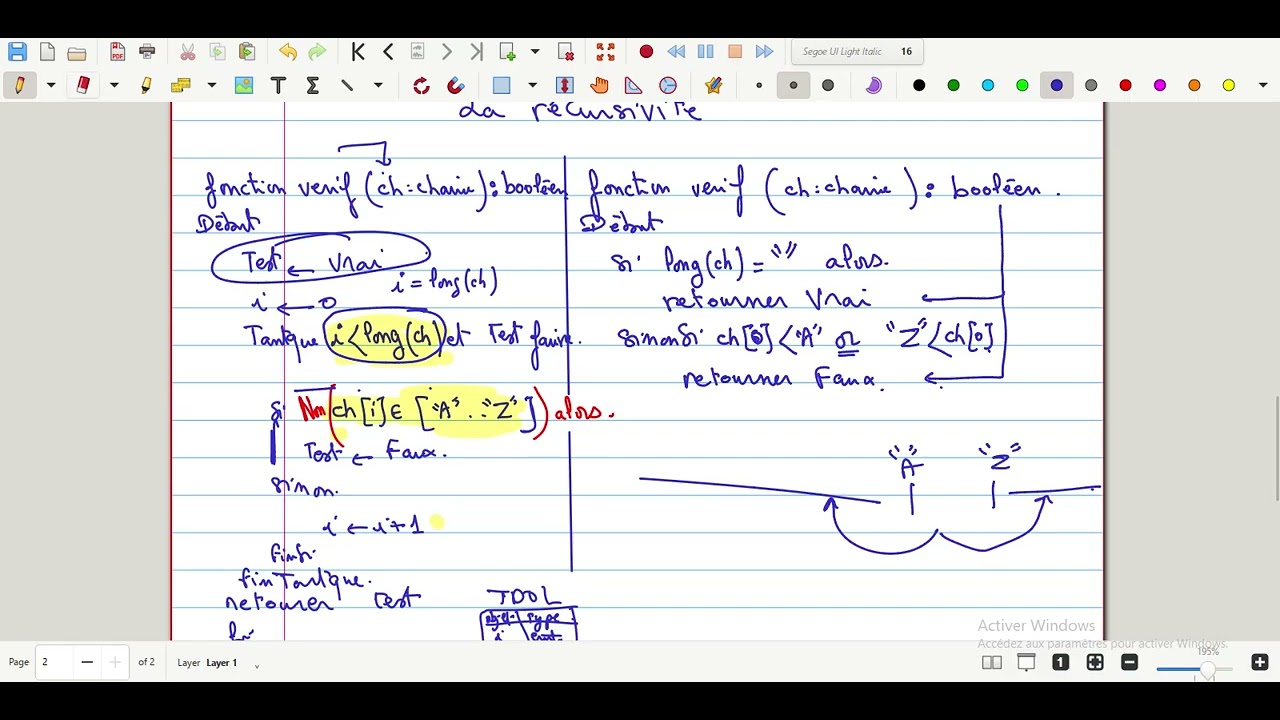 Segoe UI Light Italic 16
La récursivité
fonction verif (ch: chaine): booléen
Début
Test ← Vrai
i = long(ch)
i ← 0
Tantque i < long(ch) et Test faire.
Si Non(ch[i] ∈ ["A".."Z"]) alors.
Test ← Faux.
sinon.
i ← i+1
finsi.
finTantque.
retourner Test
fonction verif (ch: chaine): booléen.
Début
Si long(ch) = "" alors.
retourner Vrai
sinonsi ch[0] < "A" or "Z" < ch[0]
retourner Faux.
"A" "Z"
TDOL
objet type
i
Activer Windows
Accédez aux paramètres pour activer Windows.
Page 2 of 2 Layer Layer 1
195%